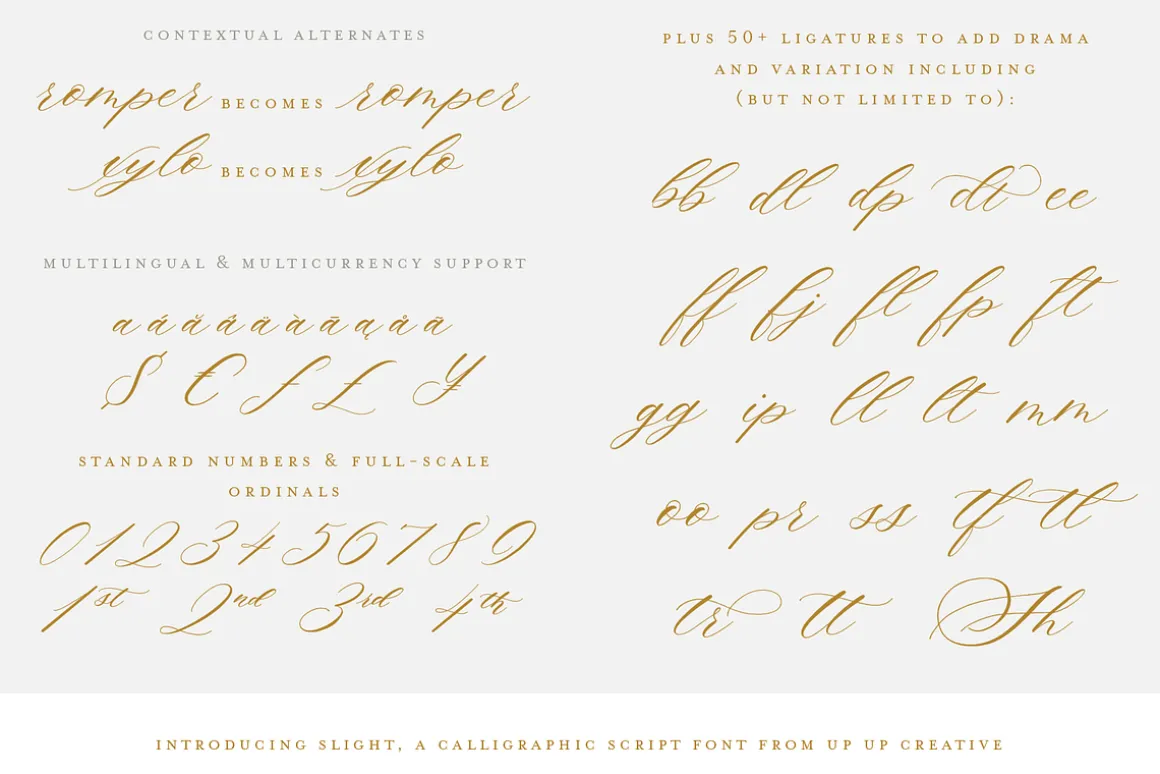 CONTEXTUAL ALTERNATES
romper BECOMES romper
xylo BECOMES xylo
MULTILINGUAL & MULTICURRENCY SUPPORT
a á ă â ä à ā ą å ã
$ € ƒ £ ¥
STANDARD NUMBERS & FULL-SCALE
ORDINALS
0 1 2 3 4 5 6 7 8 9
1st 2nd 3rd 4th
PLUS 50+ LIGATURES TO ADD DRAMA
AND VARIATION INCLUDING
(BUT NOT LIMITED TO):
bb dl dp dt ee
ff fj fl fp ft
gg ip ll lt mm
oo pr ss tf tt
tr tt Th
INTRODUCING SLIGHT, A CALLIGRAPHIC SCRIPT FONT FROM UP UP CREATIVE